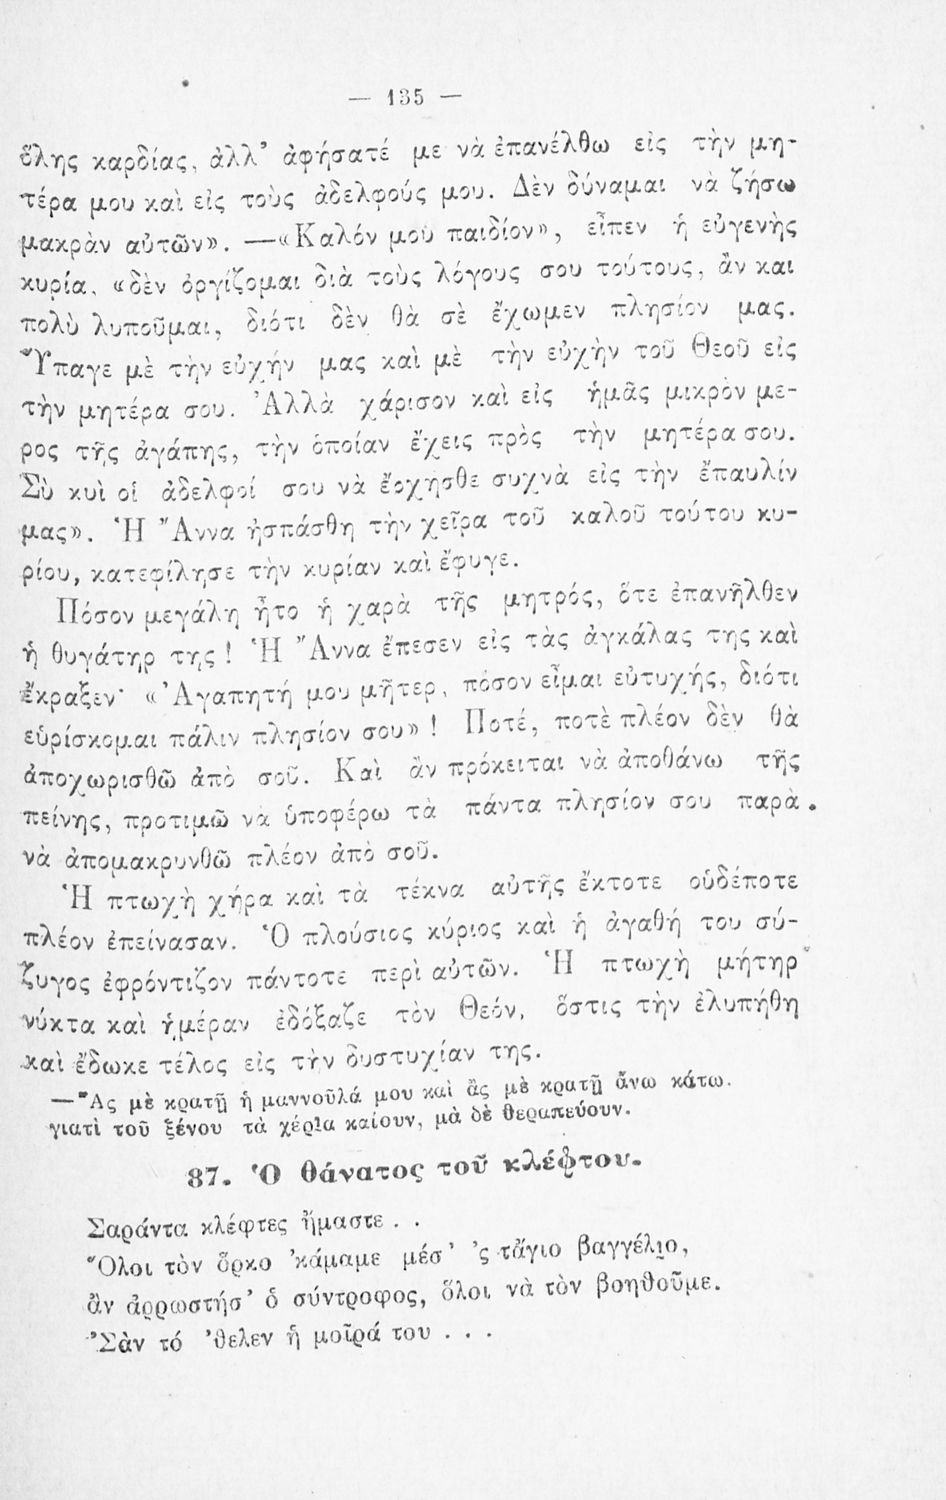 — 135 —
ὅλης καρδίας, ἀλλ’ ἀφήσατέ με νὰ ἐπανέλθω εἰς τὴν μη-
τέρα μου καὶ εἰς τοὺς ἀδελφούς μου. Δὲν δύναμαι νὰ ζήσω
μακρὰν αὐτῶν». —«Καλόν μου παιδίον», εἶπεν ἡ εὐγενὴς
κυρία, «δὲν ὀργίζομαι διὰ τοὺς λόγους σου τούτους, ἂν και
πολὺ λυποῦμαι, διότι δὲν θὰ σὲ ἔχωμεν πλησίον μας.
Ὕπαγε μὲ τὴν εὐχήν μας καὶ μὲ τὴν εὐχὴν τοῦ Θεοῦ εἰς
τὴν μητέρα σου. Ἀλλὰ χάρισον καὶ εἰς ἡμᾶς μικρὸν με-
ρος τῆς ἀγάπης, τὴν ὁποίαν ἔχεις πρὸς τὴν μητέρα σου.
Σὺ κυὶ οἱ ἀδελφοί σου νὰ ἔρχησθε συχνὰ εἰς τὴν ἔπαυλίν
μας». Ἡ Ἄννα ἠσπάσθη τὴν χεῖρα τοῦ καλοῦ τούτου κυ-
ρίου, κατεφίλησε τὴν κυρίαν καὶ ἔφυγε.
Πόσον μεγάλη ἦτο ἡ χαρὰ τῆς μητρός, ὅτε ἐπανῆλθεν
ἡ θυγάτηρ της! Ἡ Ἄννα ἔπεσεν εἰς τὰς ἀγκάλας της καὶ
ἔκραξεν· «Ἀγαπητή μου μῆτερ, πόσον εἶμαι εὐτυχής, διότι
εὑρίσκομαι πάλιν πλησίον σου»! Ποτέ, ποτὲ πλέον δὲν θὰ
ἀποχωρισθῶ ἀπὸ σοῦ. Καὶ ἂν πρόκειται νὰ ἀποθάνω τῆς
πείνης, προτιμῶ νὰ ὑποφέρω τὰ πάντα πλησίον σου παρὰ
νὰ ἀπομακρυνθῶ πλέον ἀπὸ σοῦ.
Ἡ πτωχὴ χήρα καὶ τὰ τέκνα αὐτῆς ἔκτοτε οὐδέποτε
πλέον ἐπείνασαν. Ὁ πλούσιος κύριος καὶ ἡ ἀγαθή του σύ-
ζυγος ἐφρόντιζον πάντοτε περὶ αὐτῶν. Ἡ πτωχὴ μήτηρ
νύκτα καὶ ἡμέραν ἐδόξαζε τὸν Θεόν, ὅστις τὴν ἐλυπήθη
καὶ ἔδωκε τέλος εἰς τὴν δυστυχίαν της.
—Ἂς μὲ κρατῇ ἡ μαννοῦλά μου καὶ ἂς μὲ κρατῇ ἄνω κάτω.
γιατὶ τοῦ ξένου τὰ χέρια καίουν, μὰ δὲ θεραπεύουν.
87. Ὁ θάνατος τοῦ κλέφτου.
Σαράντα κλέφτες ἤμαστε . .
Ὅλοι τὸν ὅρκο ’κάμαμε μέσ’ ’ς τἄγιο βαγγέλιο,
ἂν ἀρρωστήσ’ ὁ σύντροφος, ὅλοι νὰ τὸν βοηθοῦμε.
Σὰν τό ’θελεν ἡ μοῖρά του . . .